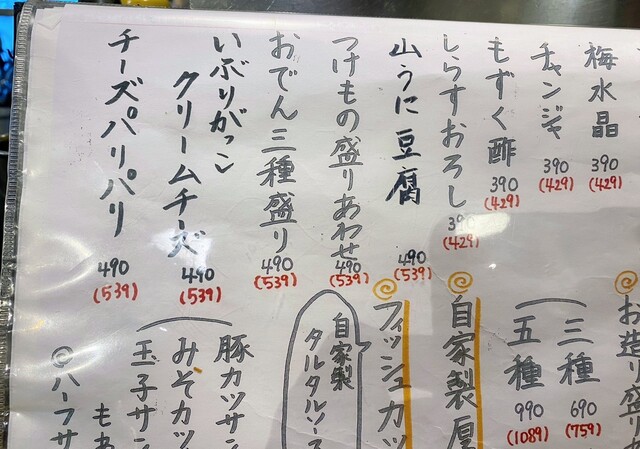 梅水晶
390
(429)
チャンジャ
390
(429)
もずく酢
390
(429)
しらすおろし
390
(429)
山うに豆腐
490
(539)
つけもの盛りあわせ
490
(539)
おでん三種盛り
490
(539)
いぶりがっこ
クリームチーズ
490
(539)
チーズパリパリ
490
(539)
お造り盛り
三種
690
(759)
五種
990
(1089)
自家製厚
フィッシュカツ
自家製
タルタルソース
豚カツサン
みそカツ
玉子サン
ハーフサ
もあ